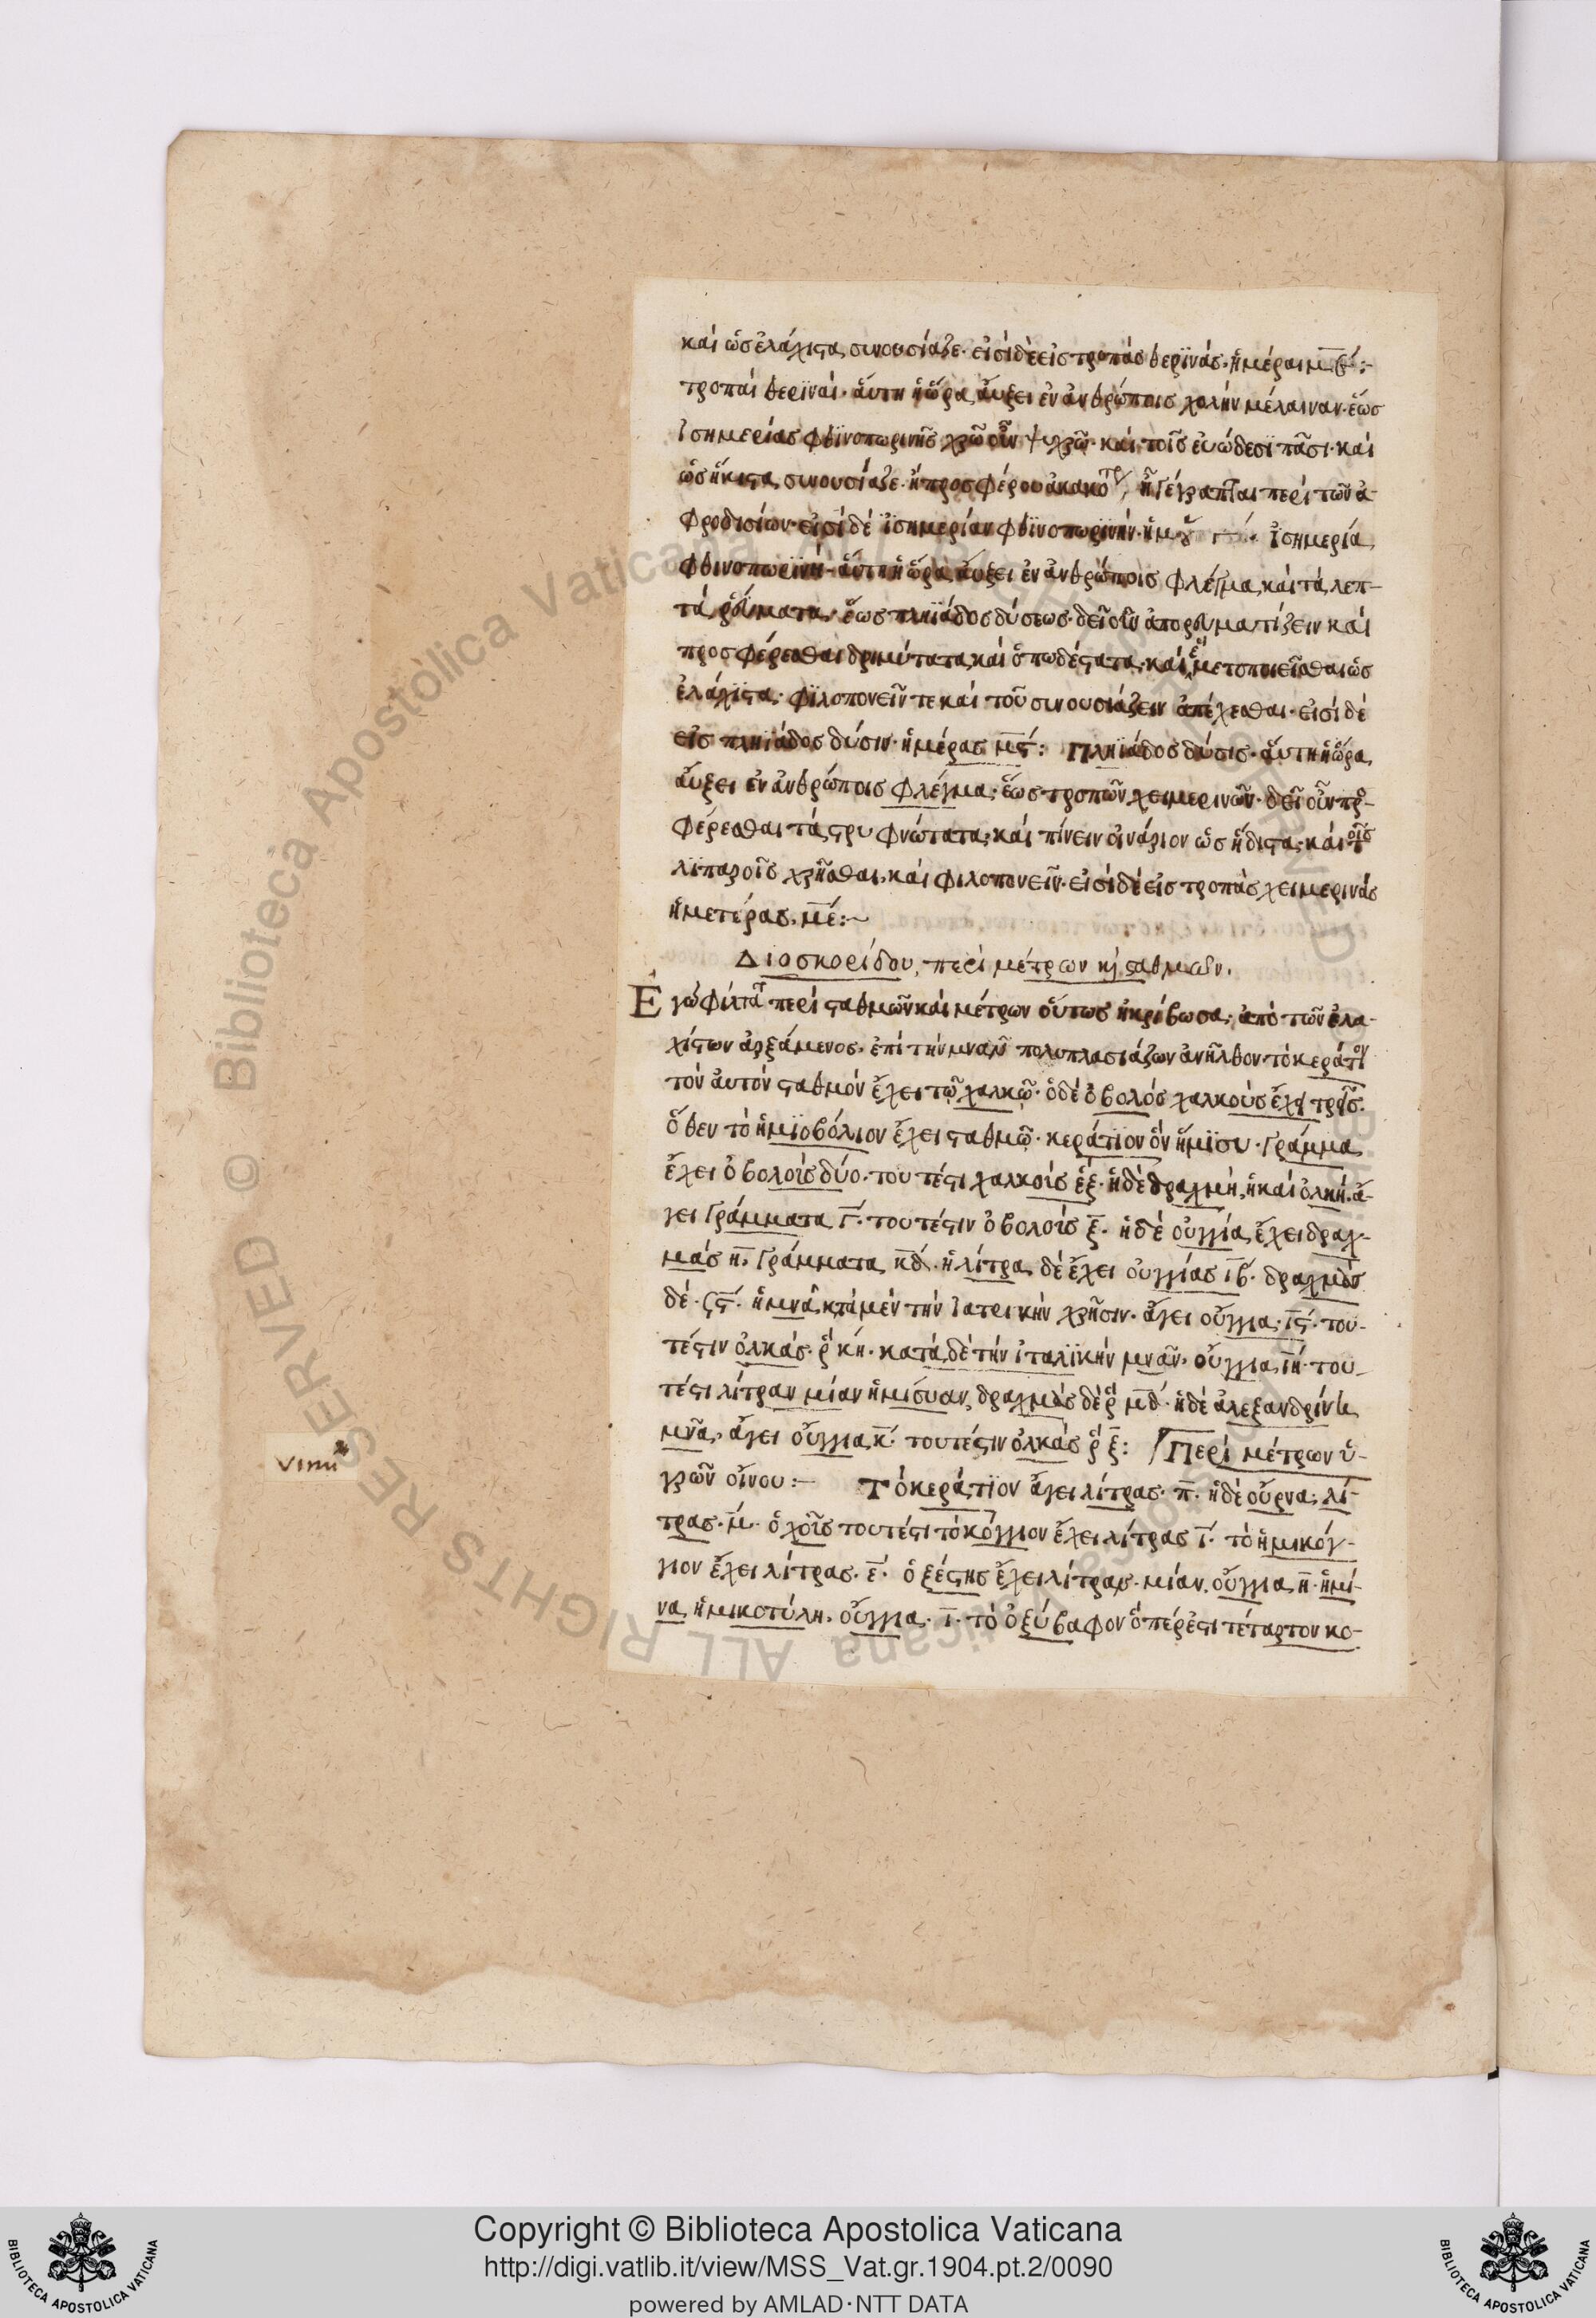 καὶ ὡς ἐλάχιστα συνουσίαζε· εἰσὶ δὲ εἰς τροπὰς θερϊνάς· ἡμέραι μ̅β̅:-
τροπαὶ θερϊναί· ἅυτη ἡ ὥρα, ἄυξει ἐν ἀνθρώποις χολὴν μέλαιναν· ἕως
ἰσημερίας φθϊνοπωρινῆς χρῶ οὖν ψυχρῶ· καὶ τοῖς ἐυώδεσϊ πᾶσι· καὶ
ὡς ἥκιστα συνουσίαζε· γέγραπται περὶ τῶν ἀ-
φροδισίων· εἰσὶ δὲ ἰσημερίαν φθϊνοπωρϊνήν· ἰσημερία
φθινοπωρϊνή· ἅυτη ἡ ὥρα, ἄυξει ἐν ἀνθρώποις φλέγμα, καὶ τὰ λεπ-
τὰ ῥεύματα· ἕως πληϊάδος δύσεως· δεῖ οὖν ἀπορευματίζειν καὶ
προσφέρεσθαι δριμύτατα, καὶ ὀπωδέστατα· καὶ ἐμετοποιεῖσθαι ὡς
ἐλάχϊστα· φϊλοπονεῖν τε καὶ τοῦ συνουσιάζειν ἀπέχεσθαι· εἰσὶ δὲ
εἰς πληϊάδος δύσιν· ἡμέρας μ̅ς̅: Πληϊάδος δύσις· ἅυτη ἡ ὥρα,
ἄυξει ἐν ἀνθρώποις φλέγμα· ἕως τροπῶν χειμερινῶν· δεῖ οὖν προ-
φέρεσθαι τὰ στρυφνώτατα· καὶ πίνειν οἰνάριον ὡς ἥδιστα· καὶ τοῖς
λϊπαροῖς χρῆσθαι· καὶ φιλοπονεῖν· εἰσὶ δὲ εἰς τροπὰς χειμερινὰς
ἡμετέρας· μ̅ε̅:~
Διοσκορίδου, περὶ μέτρων κὶ σταθμῶν.
Ἐγὼ φίλτατε περὶ σταθμῶν καὶ μέτρων οὕτως ἠκρίβωσα· ἀπὸ τῶν ἐλα-
χίστων ἀρξάμενος· ἐπὶ τὴν μνᾶν πολυπλασιάζων ἀνῆλθον· τὸ κεράτιον
τὸν ἀυτὸν σταθμὸν ἔχει τῷ χαλκῷ· ὁ δὲ ὀβολὸς χαλκοὺς ἔχει τρεῖς.
ὅθεν τὸ ἡμϊοβόλιον ἔχει σταθμῷ· κεράτϊον ὂν ἥμϊσυ· Γράμμα
ἔχει ὀβολοὶς δύο· τουτέστι χαλκοὶς ἕξ· ἡ δὲ δραχμὴ, ἡ καὶ ὁλκή· ἄ-
γει Γράμματα Γ̅· τουτέστιν ὀβολοὶς ξ̅· ἡ δὲ οὐγγία, ἔχει δραχ-
μὰς η̅· Γράμματα κ̅δ̅· ἡ λίτρα δὲ ἔχει οὐγγίας ι̅β̅· δραχμὰς
δὲ· ϟ̅ς̅· ἡ μνᾶ, κατὰ μὲν τὴν ἰατρικὴν χρῆσιν· ἄγει οὔγγια· ι̅ς̅· του-
τέστιν ὁλκάς· ρ̅κ̅η̅· κατὰ δὲ τὴν ἰταλϊκὴν μνᾶν· οὔγγια, ι̅η̅· του-
τέστι λίτραν μίαν ἡμίσυαν, δραχμὰς δὲ ρ̅ μ̅δ̅· ἡ δὲ ἀλεξανδρίνὴ
μνᾶ· ἄγει οὔγγια, κ̅· τουτέστιν ὁλκὰς ρ̅ ξ̅: Περὶ μέτρων ὑ-
γρῶν οἴνου:- Τὸ κεράτϊον ἄγει λίτρας· π̅· ἡ δὲ οὖρνα· λί-
τρας· μ̅· ὁ χοῖς τουτέστι τὸ κόγγιον ἔχει λίτρας ι̅· τὸ ἡμικόγ-
γιον ἔχει λίτρας· ε̅· ὁ ξέστης ἔχει λίτρας· μίαν· οὔγγια, η̅· ἡμί-
να, ἡμικοτύλη· οὔγγια· ι̅· τὸ ὀξύβαφον ὅπέρ ἐστι τέταρτον κο-
Copyright © Biblioteca Apostolica Vaticana
http://digi.vatlib.it/view/MSS_Vat.gr.1904.pt.2/0090
powered by AMLAD·NTT DATA
BIBLIOTECA APOSTOLICA VATICANA
BIBLIOTECA APOSTOLICA VATICANA